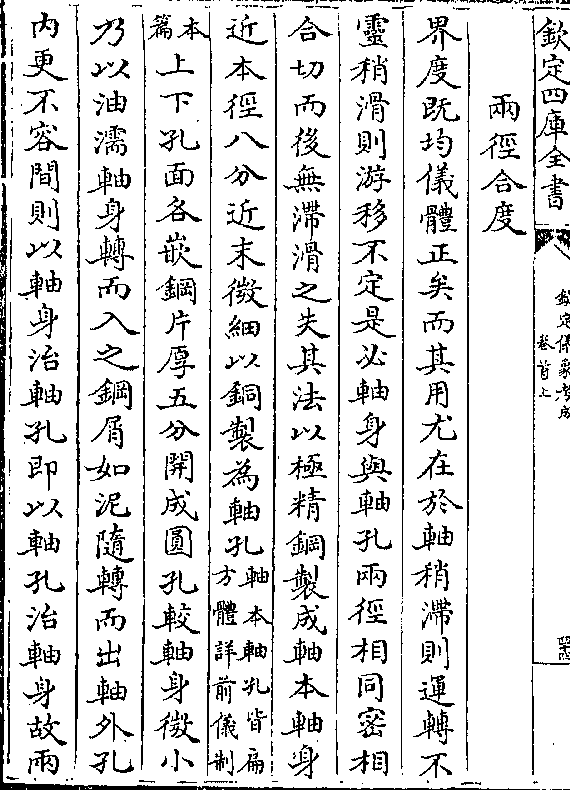 欽定四庫全書
欽定儀象考成
卷首上
兩徑合度
界度既均儀體正矣而其用尤在於軸稍滯則運轉不
靈稍滑則游移不定是必軸身與軸孔兩徑相同密相
合切而後無滯滑之失其法以極精鋼製成軸本軸身
近本徑八分近末微細以銅製為軸孔軸本軸孔皆扁
方體詳前儀制
本
篇上下孔面各嵌鋼片厚五分開成圓孔較軸身微小
乃以油濡軸身轉而入之鋼屑如泥隨轉而出軸外孔
內更不容間則以軸身治軸孔即以軸孔治軸身故兩